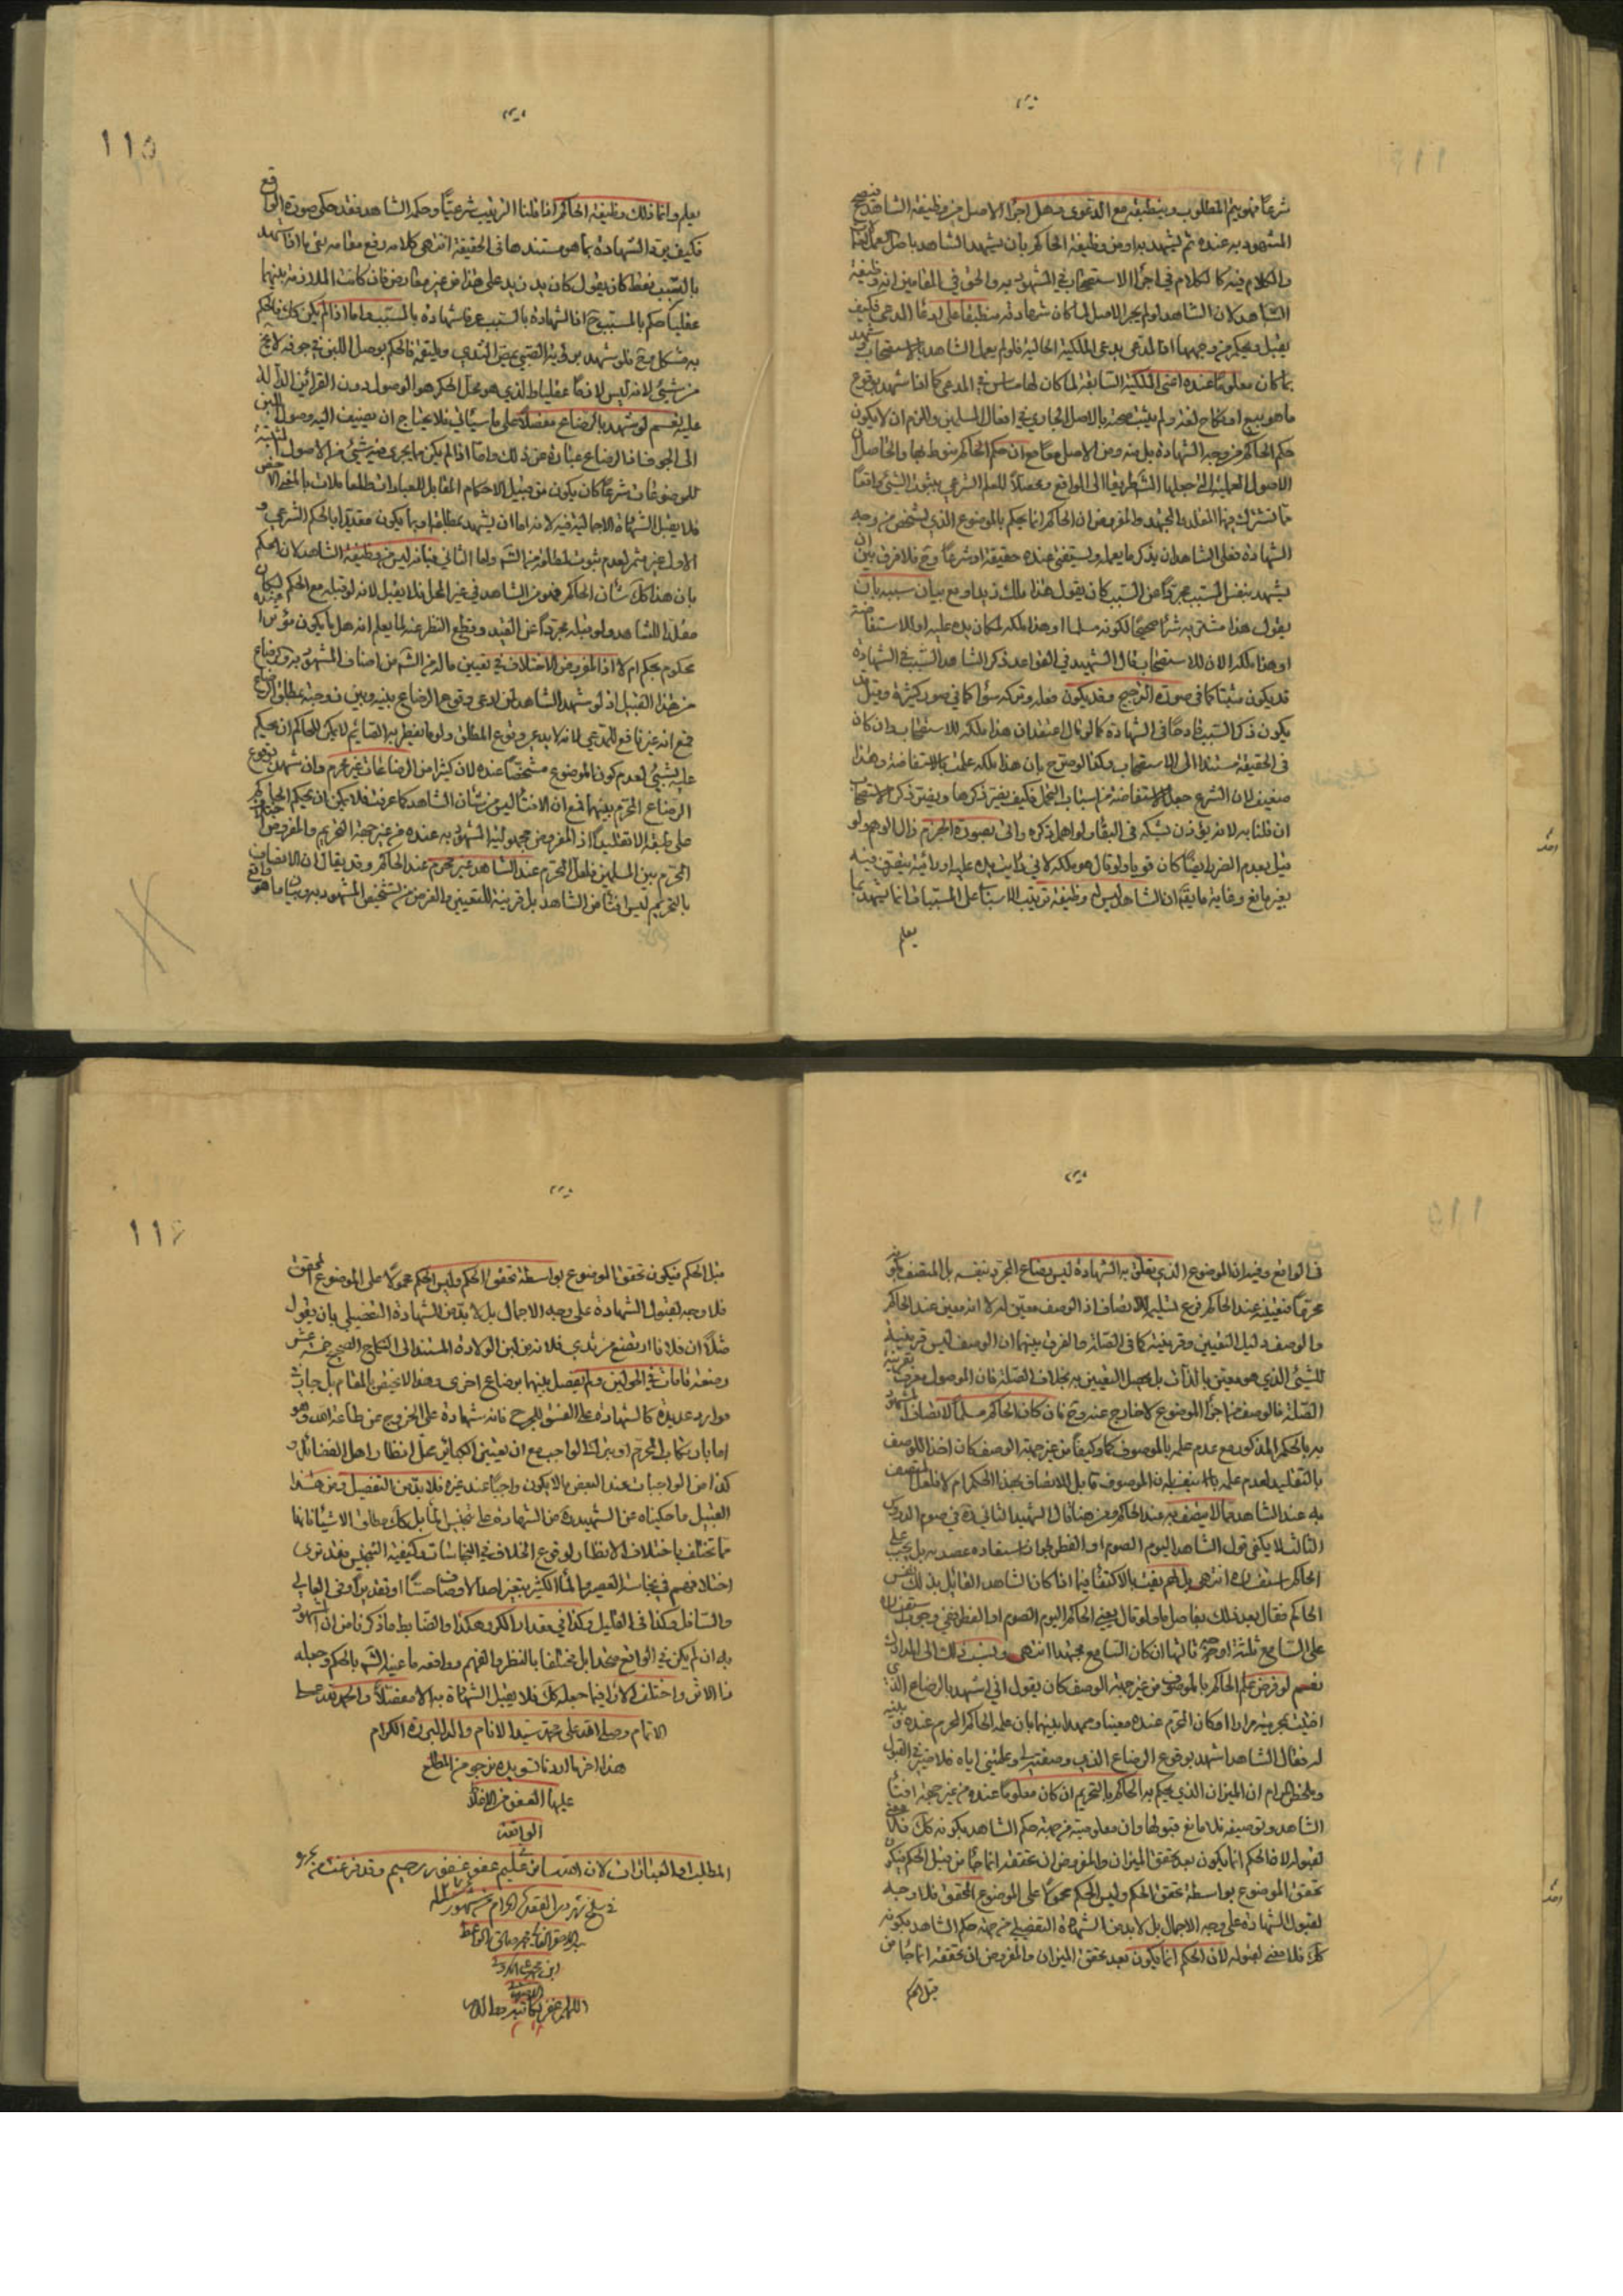 شرعاً فهو يتم المطلوب وينطبق مع الدعوى وهل اجراء الاصل من وظيفة الشاهد
المشهود به عنده ثم يشهد به او من وظيفة الحاكم بان يشهد الشاهد باصل
والكلام فيه كالكلام في اجراء الاستصحاب في المشهود به والحق في المقامين انه وظيفة
الشاهد لان الشاهد لو لم يجر الاصل لما كان شهادته منطبقا على ادعاء المدعى فكيف
يقبل ويحكم من وجهها اذ المدعى يدعى الملكية الحالية فلو لم يعمل الشاهد بالاستصحاب وشهد
بما كان معلوما عنده اعنى الملكية السابقة لما كان لها مساس في المدعى كما اذا شهد بوقوع
ما هو بيع او نكاح لغة ولم يثبت صحته بالاصل الجارى في افعال المسلمين والزم ان لا يكون
حكم الحاكم من وجه الشهادة بل منه ومن الاصل معا مع ان حكم الحاكم منوط بها والحاصل ان
الاصول العملية التى جعلها الشارع طريقا الى الواقع ومحصلة للعلم الشرعى بثبوت الشئ واقعا
مما تشترك فيها المقلد والمجتهد والمفروض ان الحاكم انما يحكم بالموضوع الذي يشخص من وجه
الشهادة فعلى الشاهد ان يذكر ما يعلمه ويستقر عنده حقيقة او شرعا وح فلا فرق بين ان
يشهد بنفس المسبب مجردا عن السبب كان يقول هذا ملك زيد او مع بيان سببه بان
يقول هذا مشترى به شراء صحيحا لكونه مسلما او هذا ملكه لمكان يده عليه او للاستفاضة
او هذا ملكه الان للاستصحاب قال الشهيد في القواعد ذكر الشاهد السبب في الشهادة
قد يكون مثبتا كما في صورة الترجيح وقد يكون فعله وتركه سواء كما في صور كثيرة وقيل قد
يكون ذكر السبب قادحا في الشهادة كما لو قال اعتقد ان هذا ملكه للاستصحاب وان كان
في الحقيقة مستندا الى الاستصحاب وكذا لو صرح بان هذا ملكه علمته بالاستفاضة وهذا
ضعيف لان الشرع جعل الاستفاضة من اسباب التحمل فكيف يضر ذكرها ويضر ذكر الاستصحاب
ان قلنا به لا من يق ذن بشكه في البقاء ولو اهمل ذكره واتى بصورة الجزم زال الوهم ولو
قيل بعدم الضرر ايضا كان قويا ولو قال هو ملكه لاني رايت يده عليه او رايته يتصرف فيه
بغير مانع وغاية ما يق ان الشاهد ليس له وظيفة ترتيب الاسباب على المسببات انما يشهد بما
يعلم
115
يعلم وانما ذلك وظيفة الحاكم اذا قلنا الترتيب شرعيا وحكم الشاهد فقد حكى صورة الواقع
فكيف يرد الشهادة بما هو مستندها في الحقيقة انتهى كلامه رفع مقامه بقى ما اذا شهد
بالسبب فقط كان يقول كان يد زيد على هذا من غير معارض فان كانت الملازمة بينهما
عقليا حكم بالمسبب ح اذ الشهادة بالسبب عرفا شهادة بالمسبب واما اذا لم يكن كك فالحكم
به مشكل وح فلو شهد برؤية الصبى يمص الثدى وحلقته فالحكم بوصول اللبن في جوفه لا يخ
من شئ لانه ليس لازما عقليا الذي هو محل الحكم هو الوصول دون القرائن الدالة
عليه نعم لو شهد بالرضاع مفصلا على ما سيأتى فلا يحتاج ان يضيف اليه وصول اللبن
الى الجوف فان الرضاع عبارة عن ذلك واما اذا لم يكن مما يجرى فيه شئ من الاصول المثبتة
للموضوعات شرعا كان يكون من قبيل الاحكام المقابل للعبادات والمعاملات بالمعنى الاخص
فلا يقبل الشهادة الاجمالية فيه لانه اما ان يشهد بمطلقه او بما يكون مقيدا بالحكم الشرعى و
الاول غير مثمر لعدم ثبوت لمطلقه من الش واما الثانى فبانه ليس من وظيفة الشاهد لان الحكم
بان هذا كك شان الحاكم فهو من الشاهد في غير المحل فلا يقبل لانه لو قبله مع الحكم لكان
مقلدا للشاهد ولو قبله مجردا عن القيد وقطع النظر عنه لما يعلم انه هل ما يكون مؤثرا
محكوم بحكم ام لا اذ المفروض الاختلاف في تعيين ما له من الش من اصناف المشهود به والرضاع
من هذا القبيل اذ لو شهد الشاهد لمن ادعى وقوع الرضاع بينه وبين زوجته بمطلق الرضاع
فمع انه غير نافع للمدعى لانه لا يدعى وقوع المطلق ولو ما يفطر به الصائم لا يمكن للحاكم ان يحكم
عليه بشئ لعدم كون الموضوع مشخصا عنده لان كثيرا من الرضاعات غير محرم وان شهد بوقوع
الرضاع المحرم بينهما فمع ان الافتاء ليس من شان الشاهد كما عرفت فلا يمكن ان يحكم الحاكم
على طبقه الا تقليدا اذ المفروض مجهولية المشهود به عنده من غير جهة التحريم والمفروض اختلاف
المحرم بين المسلمين فلعل المحرم عند الشاهد غير محرم عند الحاكم وقد يقال ان الاتصاف
بالتحريم ليس افتاء من الشاهد بل قرينة للتعيين والغرض من تشخيص المشهود به وبيان ما هو واقع
في الواقع وفيه ان الموضوع الذي يتعلق به الشهادة ليس رضاع المجرد بنفسه بل المتصف بكونه
محرما فتعيينه عند الحاكم فرع تسليمه للاتصاف اذ الوصف معين له لا انه معين عند الحاكم
والوصف دليل التعيين وقرينة كما في الصلة والفرق بينهما ان الوصف ليس قرينة
للشئ الذي هو معين بالذات بل يحصل التعيين به بخلاف الصلة فان الموصول معرفة بقرينة
الصلة فالوصف من اجزاء الموضوع لا خارج عنه وح فان كان الحاكم مسلما لاتصاف المشهود
به بالحكم المذكور مع عدم علمه بالموصوف كما وكيفا من غير جهة الوصف كان اخذا للوصف
بالتقليد لعدم علمه بانه الموصوف قابل للاتصاف بهذا الحكم ام لا فلعل المتصف
به عند الشاهد مما لا يتصف به عند الحاكم ومن هنا قال الشهيد الثانى ره في صوم الدروس
الثالث لا يكفى قول الشاهد اليوم الصوم او الفطر لجواز استناده عقيدته بل يجب على
الحاكم استفساره انتهى بل لم يفت بالاكتفاء فيما اذا كان الشاهد القائل بذلك نفس
الحاكم فقال بعد ذلك بفاصل ما ولو قال يعنى الحاكم اليوم الصوم او الفطر ففي وجوب استفساره
على السامع ثلثة اوجه ثالثها ان كان السامع مجتهدا انتهى ونسب ذلك الى المدارك
نعم لو فرض علم الحاكم بالموصوف من غير جهة الوصف كان يقول انى اشهد بالرضاع الذى
افتيت بحرمته مرارا او كان المحرم عنده معينا ومعهودا بينهما بان علمه الحاكم المحرم عنده وبينه
له فقال الشاهد اشهد بوقوع الرضاع الذي وصفته لى وعلمتنى اياه فلا ضير في القبول
وملخص المرام ان الميزان الذي يحكم به الحاكم بالتحريم ان كان معلوما عنده من غير جهة افتاء
الشاهد وتوصيفه فلا مانع من قبولها وان معلوميته من جهة حكم الشاهد بكونه كك فلا معنى
لقبوله لان الحكم انما يكون بعد تحقق الميزان والمفروض ان تحققه انما جاء من قبل الحكم فيكون
تحقق الموضوع بواسطة تحقق الحكم وليس الحكم محمولا على الموضوع المحقق فلا وجه
لقبول الشهادة على وجه الاجمال بل لابد من الشهادة التفصيلى من جهة حكم الشاهد بكونه
كك فلا معنى لقبوله لان الحكم انما يكون بعد تحقق الميزان والمفروض ان تحققه انما جاء من
قبل الحكم
قبل الحكم فيكون تحقق الموضوع بواسطة تحقق الحكم وليس الحكم محمولا على الموضوع المحقق
فلا وجه لقبول الشهادة على وجه الاجمال بل لابد من الشهادة التفصيلى بان يقول
مثلا ان فلانا ارتضع من ثدى فلانة من لبن الولادة المستند الى النكاح الصحيح خمسة عشر
رضعة تامات في الحولين ولم يفصل بينها برضاع اخرى وهذا لا يختص بالمقام بل جار في
موارد عديدة كالشهادة على الفسق للجرح فانه شهادة على الخروج عن طاعة الله وهو
اما بارتكاب المحرم او بترك الواجب مع ان تعيين الكبائر محل انظار اهل الفضائل و
كذا من الواجبات عند البعض ما لا يكون واجبا عند غيره فلابد من التفصيل ومن هذا
القبيل ما حكيناه عن الشهيد ره من الشهادة على تنجيس الماء بل كك مطلق الاشياء فانها
مما تختلف باختلاف الانظار لوقوع الخلاف في النجاسات وكيفية التنجيس فقد ترى
اختلافهم في نجاسة العصير والماء الكثير بتغير احد الاوصاف حسا او تقديرا وفي العالى
والسافل وكذا في القليل وكذا في مقدار الكر وهكذا والضابط ما ذكرنا من ان المشهود
به ان لم يكن في الواقع متحدا بل مختلفا بالنظر والفهم
ذا الاثر واختلف الاراء فيما جعله كك فلا يقبل الشهادة به الا مفصلا والحمد لله على
الاتمام وصلى الله على محمد سيد الانام واله البررة الكرام
هذا اخر ما اردنا تسويده نرجو من المطلع
عليها العفو من الاغلاط
الواقعة
المطالب والعبارات لان الانسان عفو غفور رحيم وقد فرغت من تحريره
في سلخ شهر ذى القعدة الحرام من شهور سنة
اللهم اغفر لكاتبه